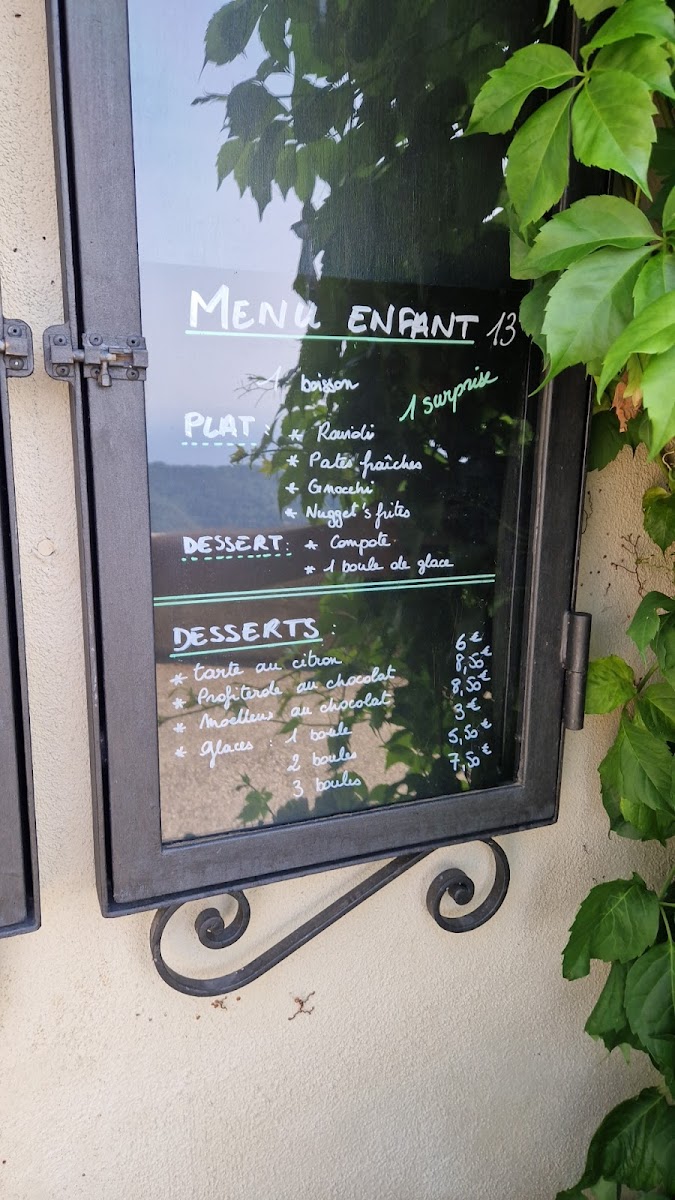 MENU ENFANT 13
1 boisson
1 surprise
PLAT : * Ravioli
* Pates fraîches
* Gnocchi
* Nugget's frites
DESSERT : * Compote
* 1 boule de glace
DESSERTS :
* tarte au citron 6€
* Profiterole au chocolat 8,50€
* Moelleux au chocolat 8,50€
* Glaces 1 boule 3€
2 boules 5,50€
3 boules 7,50€